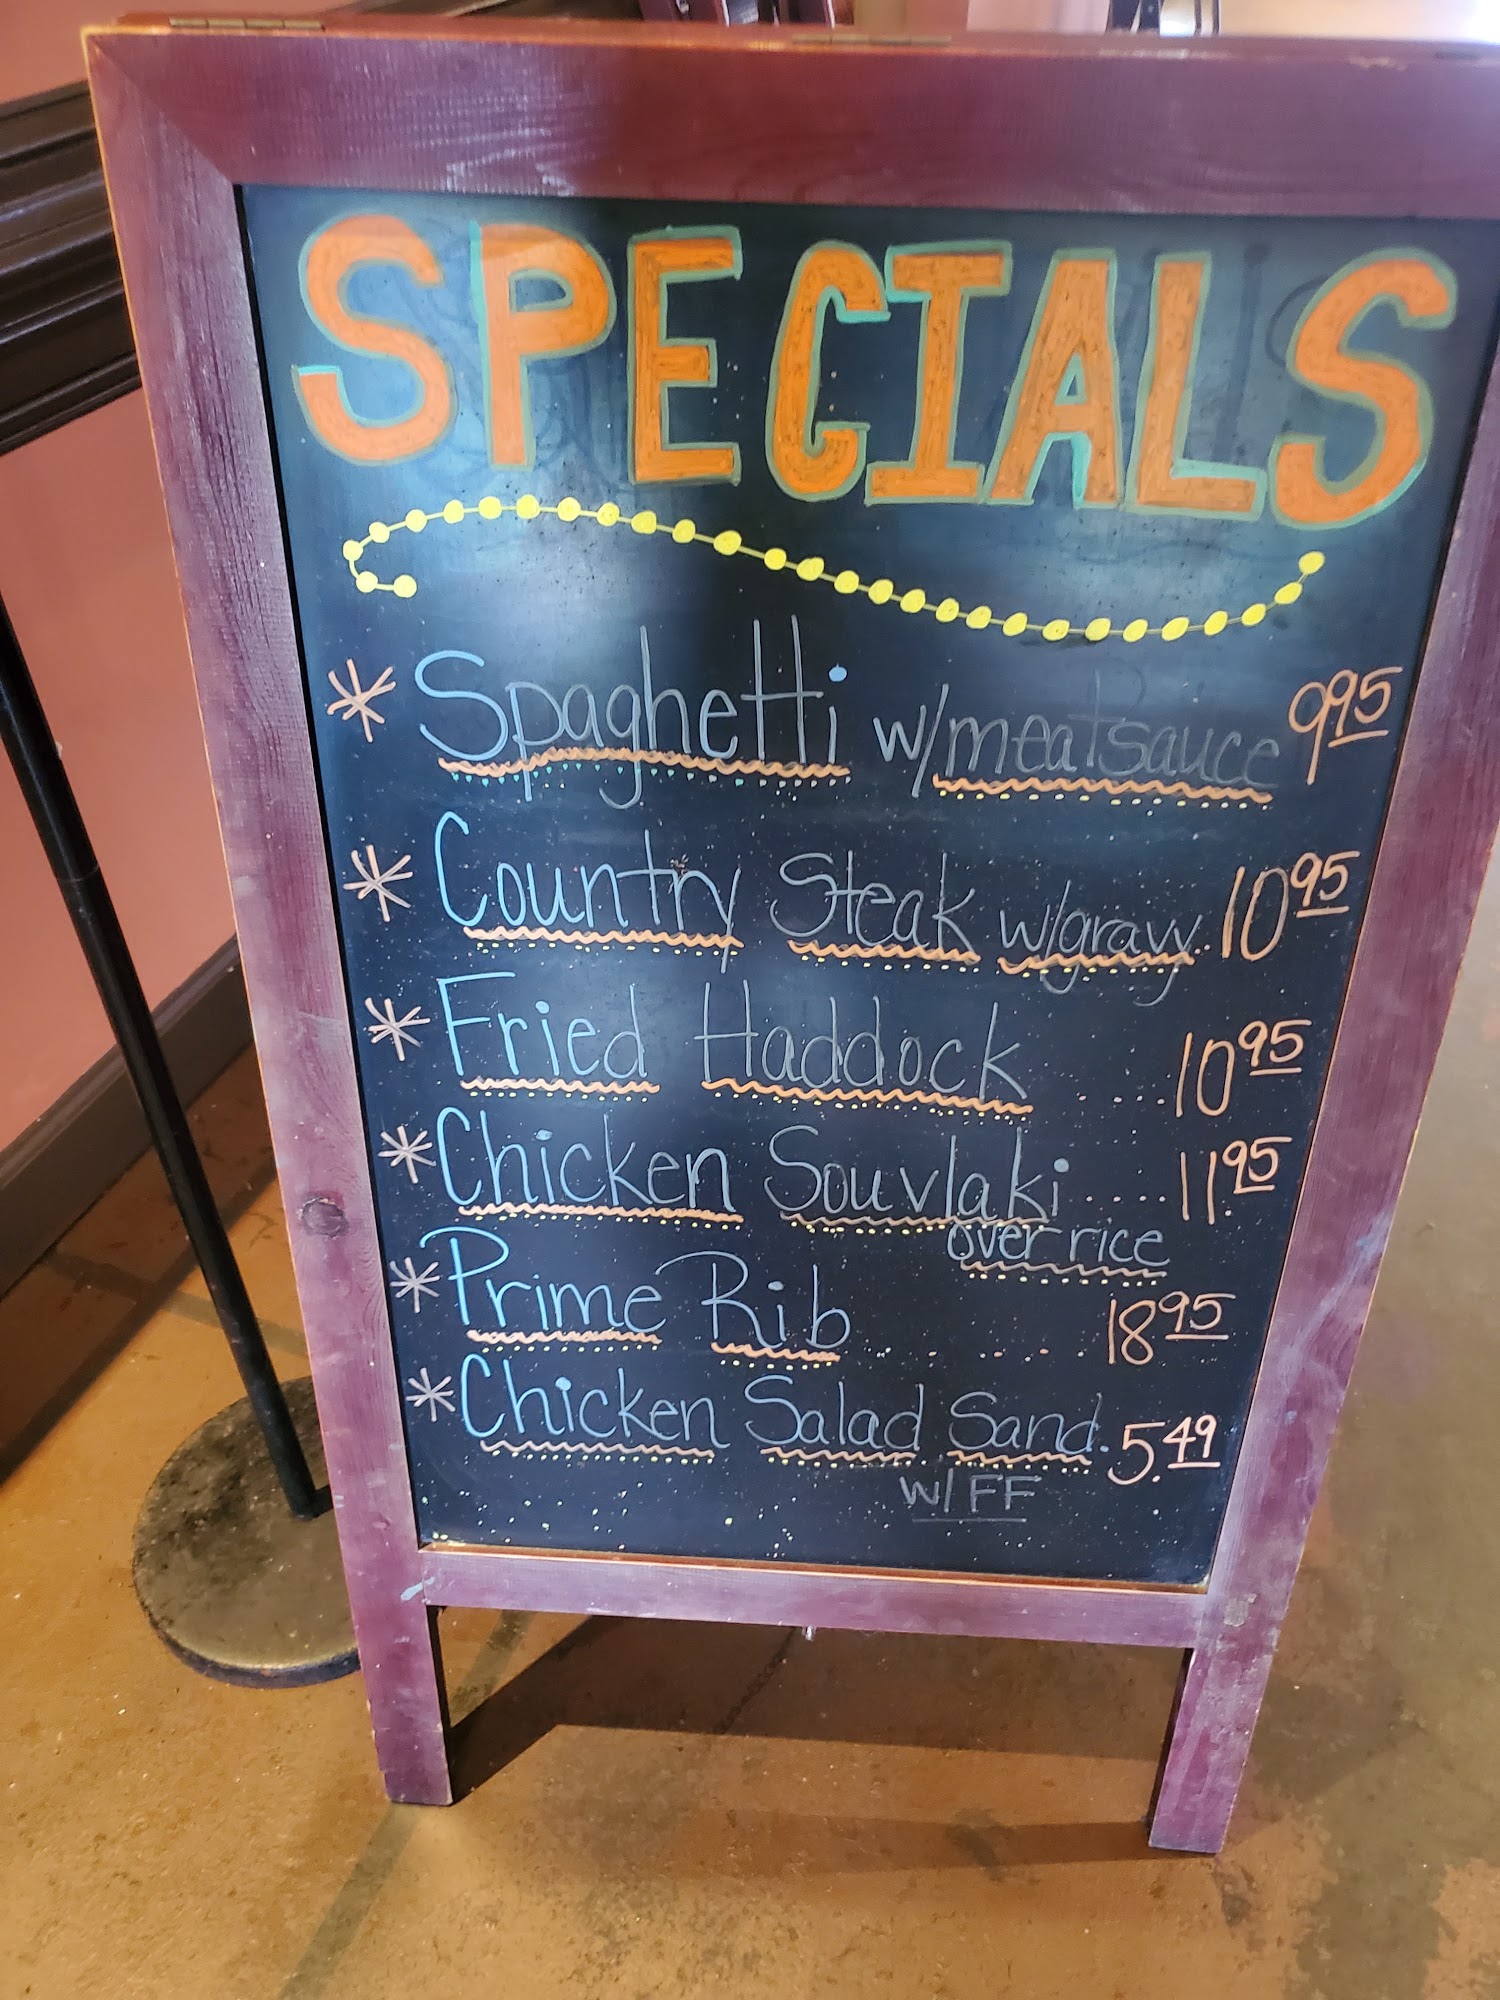 SPECIALS
* Spaghetti w/meatsauce 9.95
* Country Steak w/gravy.. 10 95
* Fried Haddock ..... 10 95
* Chicken Souvlaki ..... 11.95
over rice
* Prime Rib ....... 18 95
* Chicken Salad Sand. 5.49
w/FF